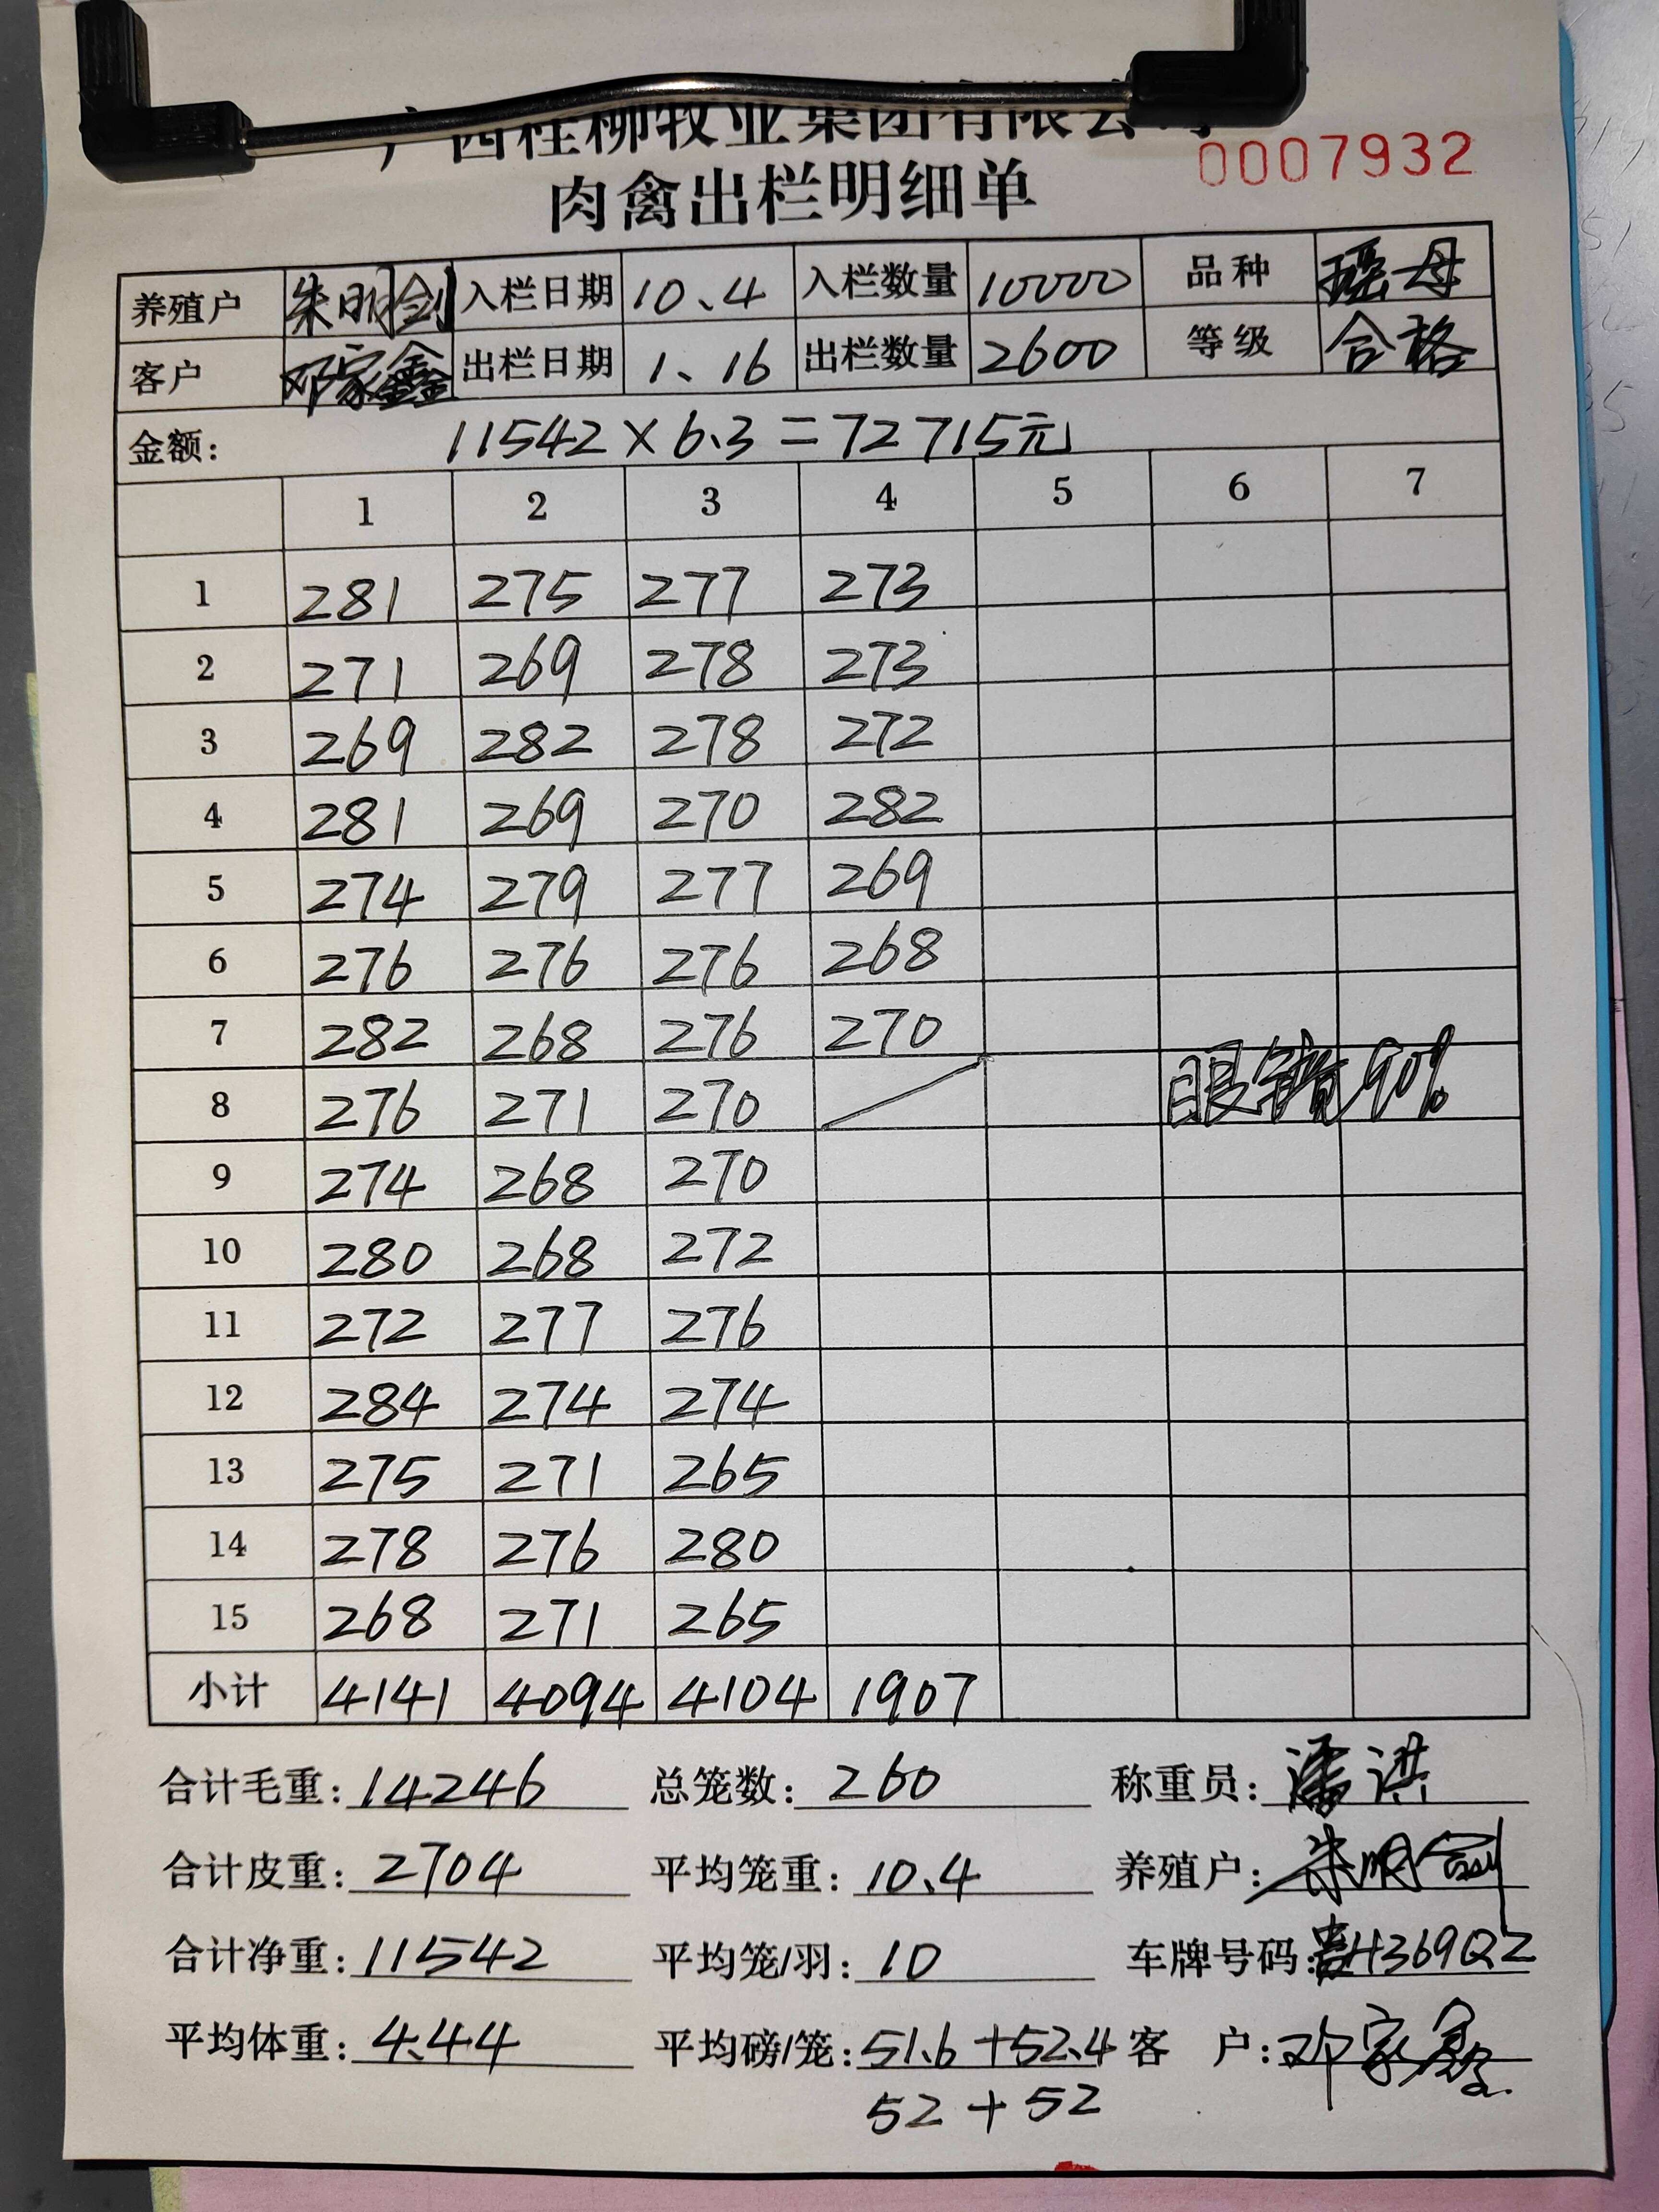 广西桂柳牧业集团有限公司
0007932
肉禽出栏明细单
养殖户 朱明剑 入栏日期 10.4 入栏数量 10000 品种 瑶母
客户 邓家鑫 出栏日期 1.16 出栏数量 2600 等级 合格
金额: 11542×6.3=72715元
1 2 3 4 5 6 7
1 281 275 277 273
2 271 269 278 273
3 269 282 278 272
4 281 269 270 282
5 274 279 277 269
6 276 276 276 268
7 282 268 276 270
8 276 271 270 眼镜90%
9 274 268 270
10 280 268 272
11 272 277 276
12 284 274 274
13 275 271 265
14 278 276 280
15 268 271 265
小计 4141 4094 4104 1907
合计毛重:14246 总笼数:260 称重员:潘洪
合计皮重:2704 平均笼重:10.4 养殖户:朱明剑
合计净重:11542 平均笼/羽:10 车牌号码:贵H369QZ
平均体重:4.44 平均磅/笼:51.6+52.4 客 户:邓家鑫
52+52